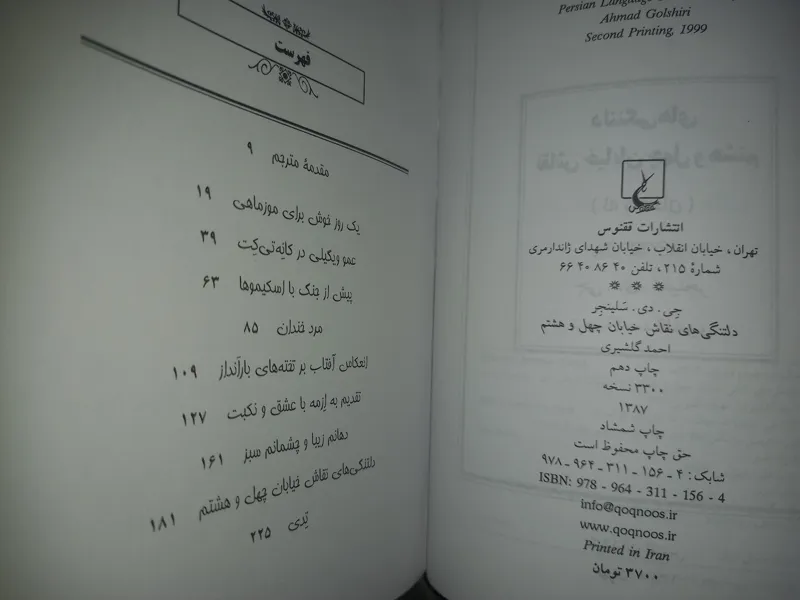 Persian Language
Ahmad Golshiri
Second Printing, 1999
انتشارات ققنوس
تهران، خیابان انقلاب، خیابان شهدای ژاندارمری
شمارهٔ ۲۱۵، تلفن ۴۰ ۸۶ ۴۰ ۶۶
* * *
جی. دی. سَلینجِر
دلتنگی‌های نقاش خیابان چهل و هشتم
احمد گلشیری
چاپ دهم
۳۳۰۰ نسخه
۱۳۸۷
چاپ شمشاد
حق چاپ محفوظ است
شابک: ۴ - ۱۵۶ - ۳۱۱ - ۹۶۴ - ۹۷۸
ISBN: 978 - 964 - 311 - 156 - 4
info@qoqnoos.ir
www.qoqnoos.ir
Printed in Iran
۳۷۰۰ تومان
فهرست
مقدمهٔ مترجم ۹
یک روز خوش برای موزماهی ۱۹
عمو ویگیلی در کانِه‌تی‌کِت ۳۹
پیش از جنگ با اسکیموها ۶۳
مرد خندان ۸۵
انعکاس آفتاب بر تخته‌های بارانداز ۱۰۹
تقدیم به اِزمه با عشق و نکبت ۱۲۷
دهانم زیبا و چشمانم سبز ۱۶۱
دلتنگی‌های نقاش خیابان چهل و هشتم ۱۸۱
تِدی ۲۲۵